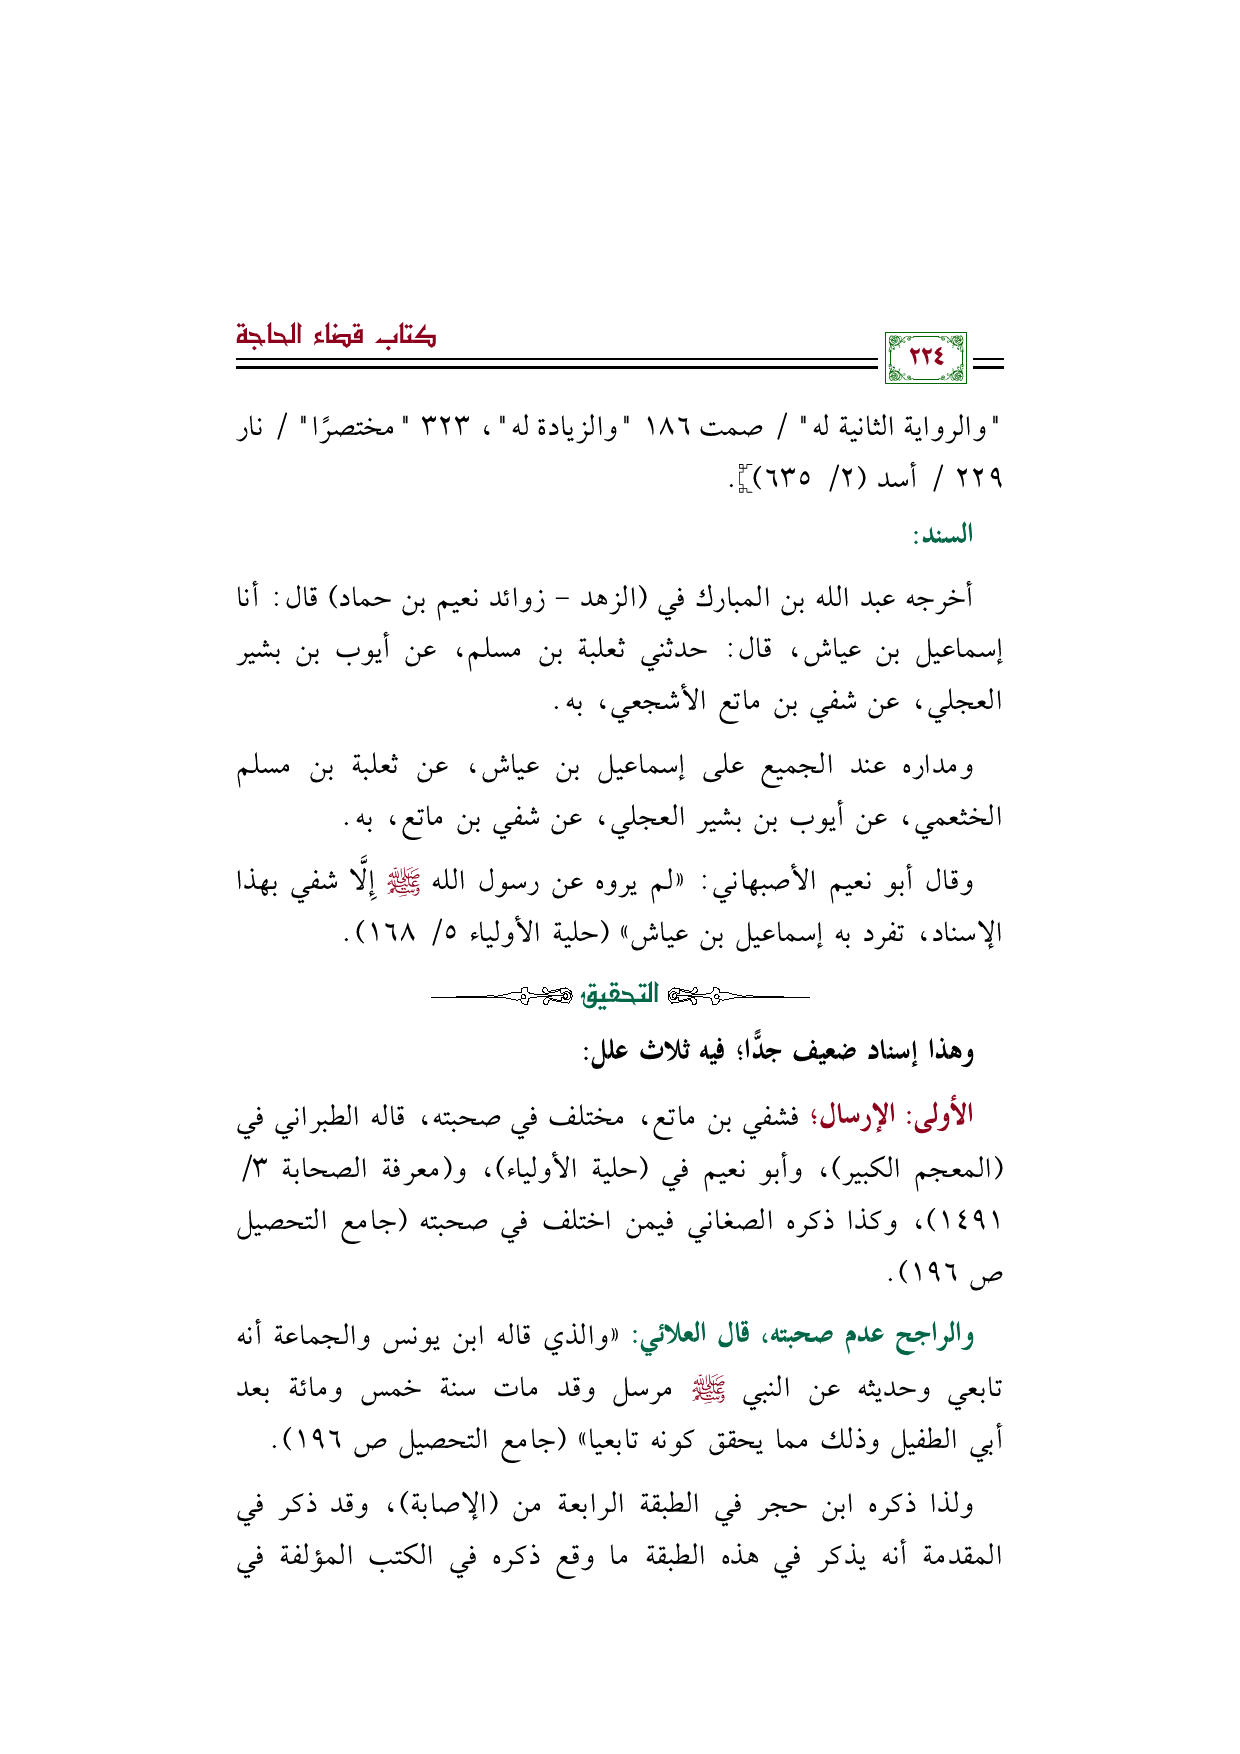 كتاب قضاء الحاجة
٢٢٤
"والرواية الثانية له" / صمت ١٨٦ "والزيادة له"، ٣٢٣ "مختصرًا" / نار
٢٢٩ / أسد (٢/ ٦٣٥)].
السند:
أخرجه عبد الله بن المبارك في (الزهد - زوائد نعيم بن حماد) قال: أنا
إسماعيل بن عياش، قال: حدثني ثعلبة بن مسلم، عن أيوب بن بشير
العجلي، عن شفي بن ماتع الأشجعي، به.
ومداره عند الجميع على إسماعيل بن عياش، عن ثعلبة بن مسلم
الخثعمي، عن أيوب بن بشير العجلي، عن شفي بن ماتع، به.
وقال أبو نعيم الأصبهاني: «لم يروه عن رسول الله ﷺ إِلَّا شفي بهذا
الإسناد، تفرد به إسماعيل بن عياش» (حلية الأولياء ٥/ ١٦٨).
التحقيق
وهذا إسناد ضعيف جدًّا؛ فيه ثلاث علل:
الأولى: الإرسال؛ فشفي بن ماتع، مختلف في صحبته، قاله الطبراني في
(المعجم الكبير)، وأبو نعيم في (حلية الأولياء)، و(معرفة الصحابة ٣/
١٤٩١)، وكذا ذكره الصغاني فيمن اختلف في صحبته (جامع التحصيل
ص ١٩٦).
والراجح عدم صحبته، قال العلائي: «والذي قاله ابن يونس والجماعة أنه
تابعي وحديثه عن النبي ﷺ مرسل وقد مات سنة خمس ومائة بعد
أبي الطفيل وذلك مما يحقق كونه تابعيا» (جامع التحصيل ص ١٩٦).
ولذا ذكره ابن حجر في الطبقة الرابعة من (الإصابة)، وقد ذكر في
المقدمة أنه يذكر في هذه الطبقة ما وقع ذكره في الكتب المؤلفة في